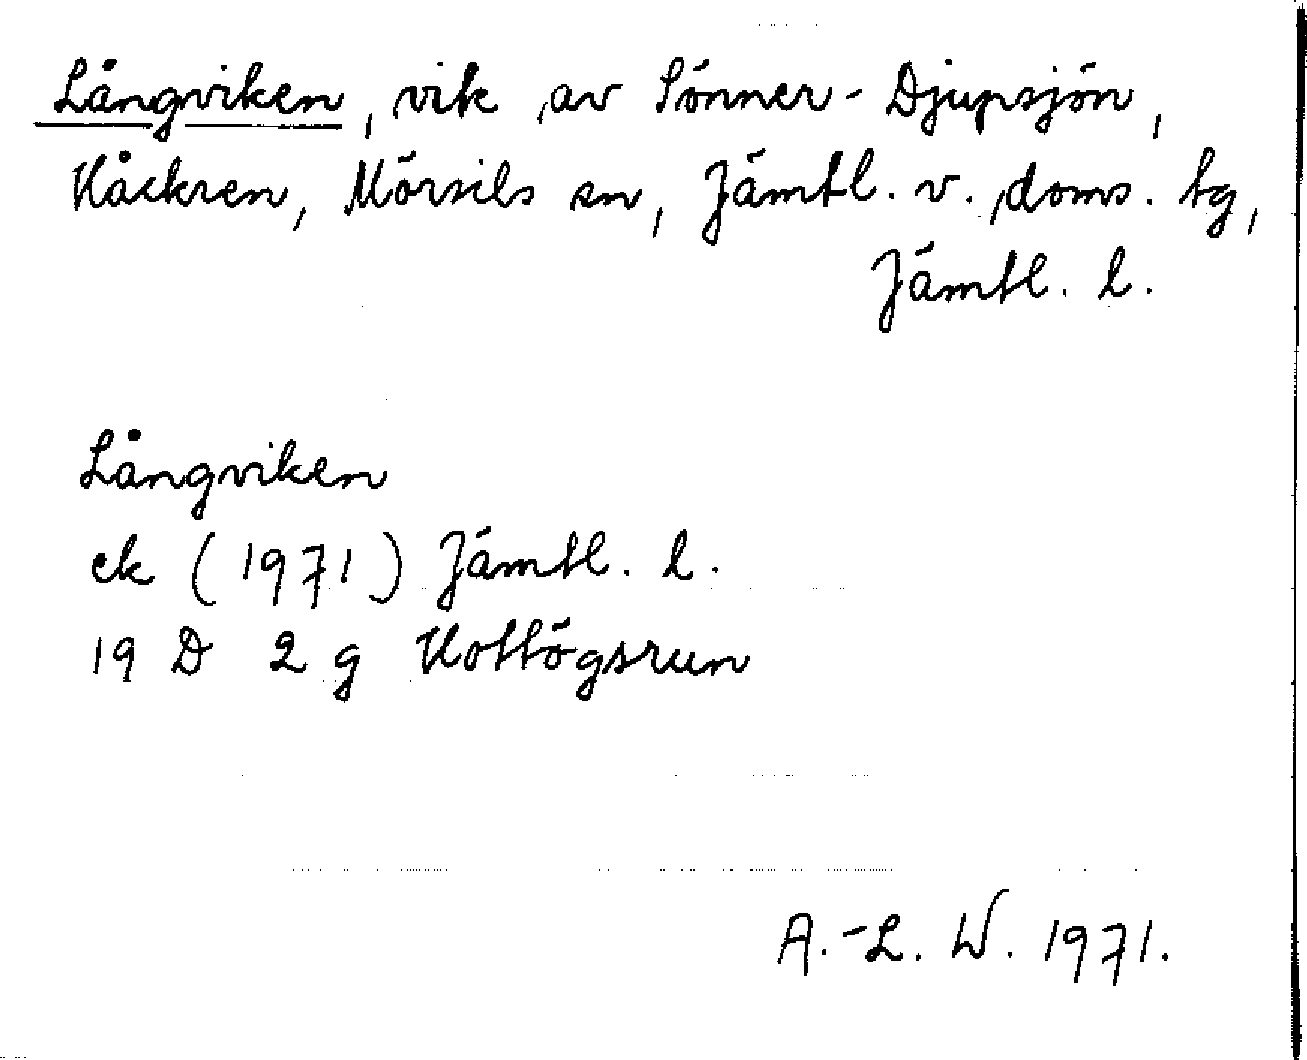 Långviken, vik av Sönner-Djupsjön,
Håckren, Mörsils sn, Jämtl. v. doms. tg,
Jämtl. l.
Långviken
ek (1971) Jämtl. l.
19 D 2 g Hottögsrun
A.-L. W. 1971.